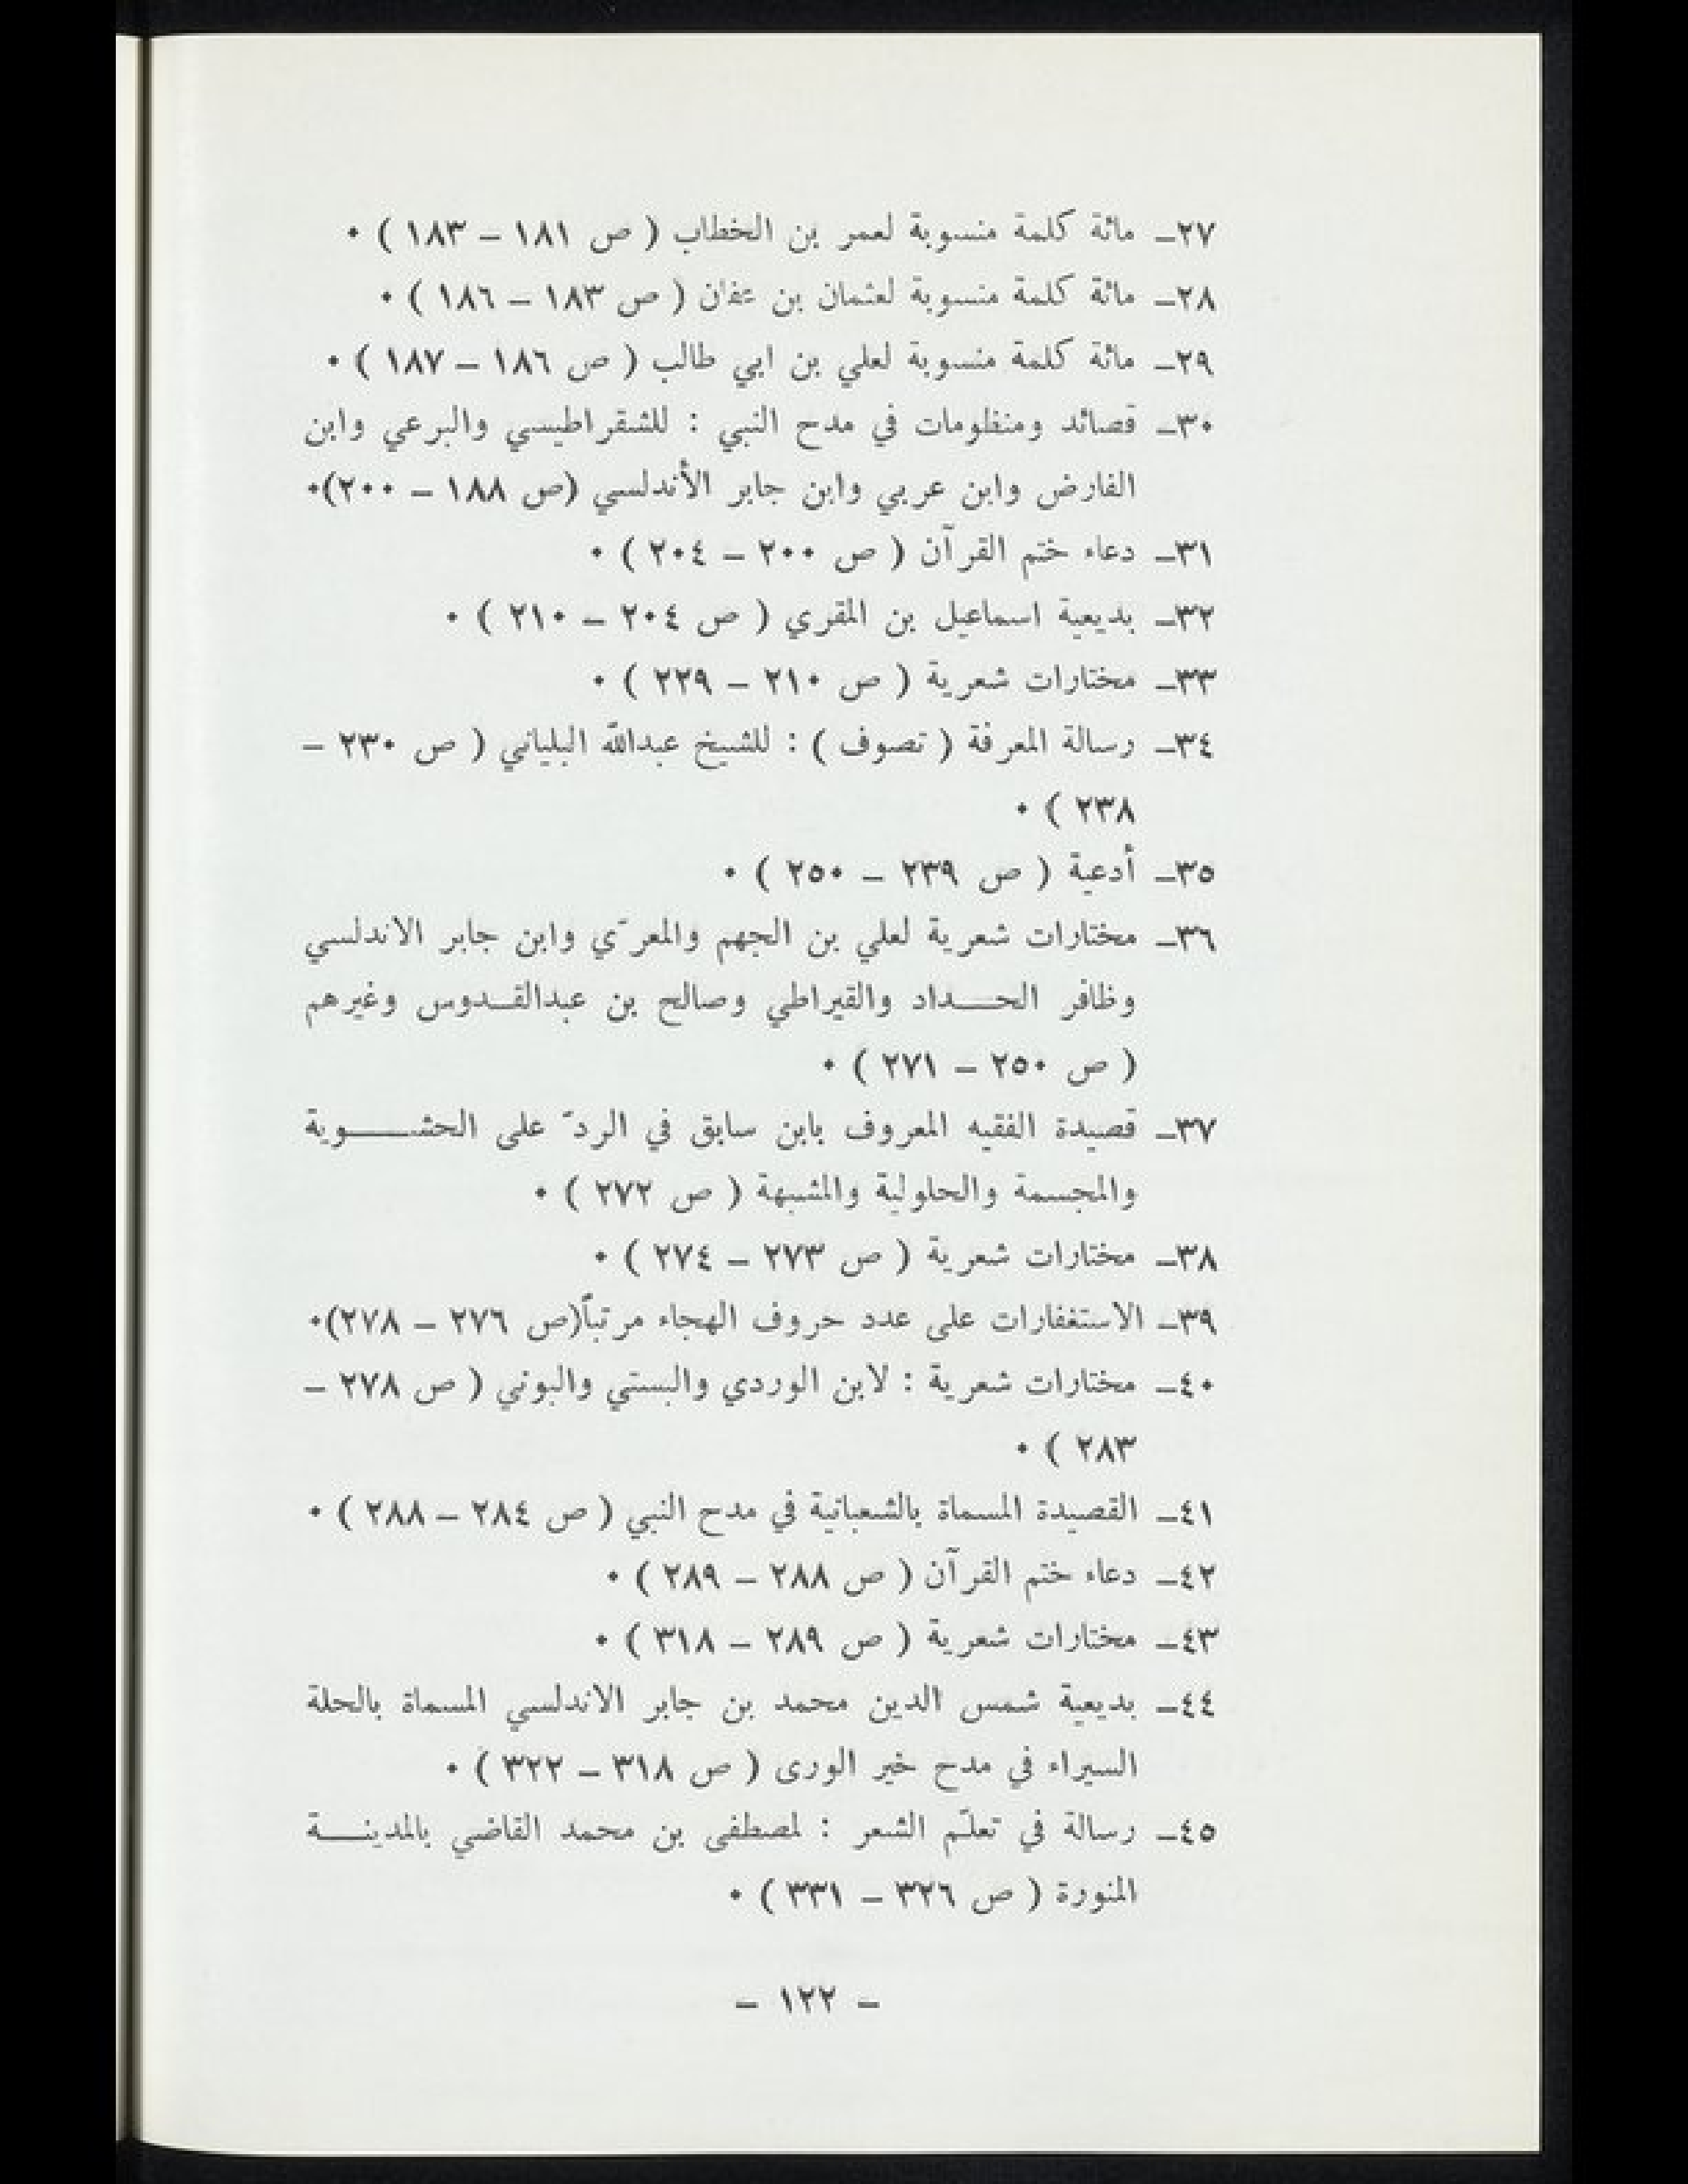 ٢٧ـ مائة كلمة منسوبة لعمر بن الخطاب ( ص ١٨١ – ١٨٣ ) ٠
٢٨ـ مائة كلمة منسوبة لعثمان بن عفان ( ص ١٨٣ – ١٨٦ ) ٠
٢٩ـ مائة كلمة منسوبة لعلي بن ابي طالب ( ص ١٨٦ – ١٨٧ ) ٠
٣٠ـ قصائد ومنظومات في مدح النبي : للشقراطيسي والبرعي وابن
الفارض وابن عربي وابن جابر الأندلسي (ص ١٨٨ – ٢٠٠)٠
٣١ـ دعاء ختم القرآن ( ص ٢٠٠ – ٢٠٤ ) ٠
٣٢ـ بديعية اسماعيل بن المقري ( ص ٢٠٤ – ٢١٠ ) ٠
٣٣ـ مختارات شعرية ( ص ٢١٠ – ٢٢٩ ) ٠
٣٤ـ رسالة المعرفة ( تصوف ) : للشيخ عبدالله البلياني ( ص ٢٣٠ –
٢٣٨ ) ٠
٣٥ـ أدعية ( ص ٢٣٩ – ٢٥٠ ) ٠
٣٦ـ مختارات شعرية لعلي بن الجهم والمعرّي وابن جابر الاندلسي
وظافر الحـــداد والقيراطي وصالح بن عبدالقـدوس وغيرهم
( ص ٢٥٠ – ٢٧١ ) ٠
٣٧ـ قصيدة الفقيه المعروف بابن سابق في الردّ على الحشــــوية
والمجسمة والحلولية والمشبهة ( ص ٢٧٢ ) ٠
٣٨ـ مختارات شعرية ( ص ٢٧٣ – ٢٧٤ ) ٠
٣٩ـ الاستغفارات على عدد حروف الهجاء مرتباً(ص ٢٧٦ – ٢٧٨)٠
٤٠ـ مختارات شعرية : لابن الوردي والبستي والبوني ( ص ٢٧٨ –
٢٨٣ ) ٠
٤١ـ القصيدة المسماة بالشعبانية في مدح النبي ( ص ٢٨٤ – ٢٨٨ ) ٠
٤٢ـ دعاء ختم القرآن ( ص ٢٨٨ – ٢٨٩ ) ٠
٤٣ـ مختارات شعرية ( ص ٢٨٩ – ٣١٨ ) ٠
٤٤ـ بديعية شمس الدين محمد بن جابر الاندلسي المسماة بالحلة
السيراء في مدح خير الورى ( ص ٣١٨ – ٣٢٢ ) ٠
٤٥ـ رسالة في تعلّم الشعر : لمصطفى بن محمد القاضي بالمدينـــة
المنورة ( ص ٣٢٦ – ٣٣١ ) ٠
– ١٢٢ –